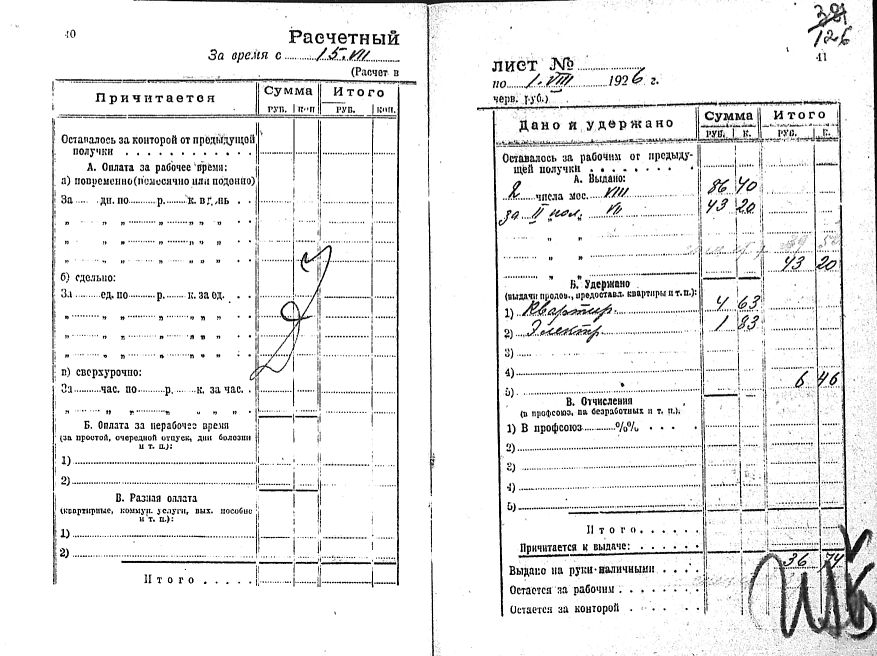 40
Расчетный
За время с 15.VII
(Расчет в
Причитается
Сумма
Итого
РУБ. КОП
РУБ. КОП.
Оставалось за конторой от предыдущей
получки
А. Оплата за рабочее время:
а) повременно (помесячно или поденно)
За дн. по р. к. в день
" " " " " "
" " " " " "
" " " " " "
б) сдельно:
За ед. по р. к. за ед.
" " " " " "
" " " " " "
" " " " " "
в) сверхурочно:
За час. по р. к. за час.
" " " " " "
Б. Оплата за нерабочее время
(за простой, очередной отпуск, дни болезни
и т. п.):
1)
2)
В. Разная оплата
(квартирные, коммун. услуги, вых. пособие
и т. п.):
1)
2)
Итого
126
41
ЛИСТ №
по 1.VIII 1926 г.
черв. руб.)
Дано и удержано
Сумма
Итого
РУБ. К.
РУБ. К.
Оставалось за рабочим от предыду-
щей получки
А. Выдано:
2 числа мес. VIII 86 40
за II пол. " VII 43 20
" "
" " 43 20
Б. Удержано
(выдачи продов., предоставл. квартиры и т. п.):
1) Квартир. 4 63
2) Электр. 1 83
3)
4)
5) 6 46
В. Отчисления
(в профсоюз, на безработных и т. п.).
1) В профсоюз %%
2)
3)
4)
5)
Итого
Причитается к выдаче:
Выдано на руки наличными 36 74
Остается за рабочим
Остается за конторой